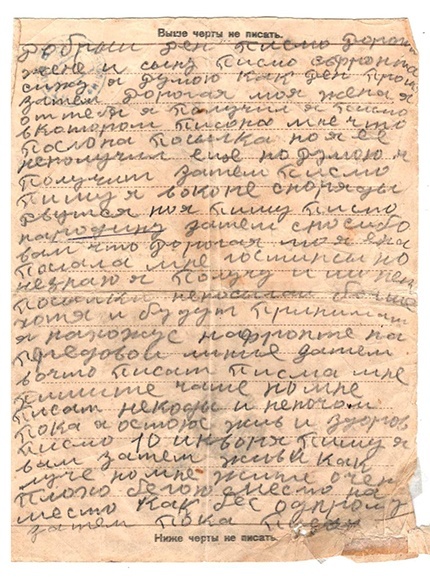 Выше черты не писать.
добрый ден писмо дорогой
жене и сыну писмо сфронта
сижу я думою как ден прош
затем дорогая моя жена я
оттебя я получил я писмо
вкатором писона мне что
послона посылка но я её
неполучил еще но думою я
получит затем писмо
пишу я вокопе споряды
рвутся но я пишу писмо
народину затем спосибо
вам что дорогая моя ена
послала мне гостинсы но
незнаю я получу и ли нет
посылки непосылай больше
хотя и будут принимат
я нахожус нафронте на
предовой линие затем
вочто писат писма мне
пишите чаше но мне
писат некоды и непочом
пока я остоюс жив и здоров
писмо 10 инворя пишу я
вам затем живи как
луче но мне жит очен
плохо бегою место на
место как бес одному
затем пока
Ниже черты не писать.